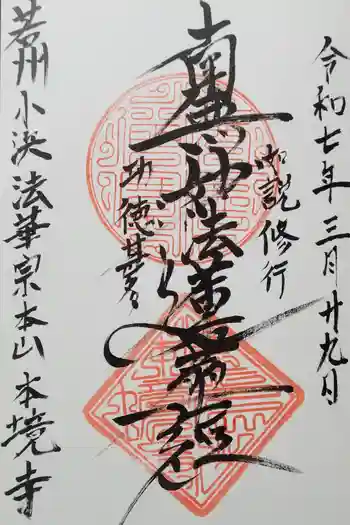 令和七年三月廿九日
如説修行
南無妙法蓮華経
功徳甚多
若州小浜法華宗本山本境寺